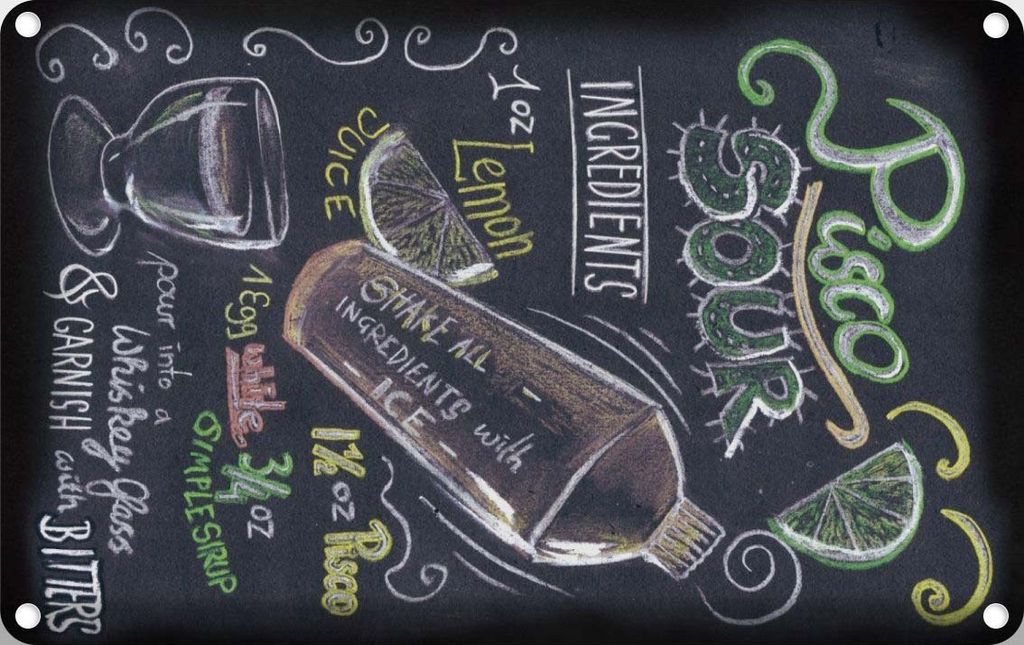 Pisco
SOUR
INGREDIENTS
1 oz
Lemon
JUICE
SHAKE ALL
INGREDIENTS with
ICE
1½ oz Pisco
1 Egg white
¾ oz
SIMPLE SIRUP
pour into a
Whiskey glass
& GARNISH with BITTERS